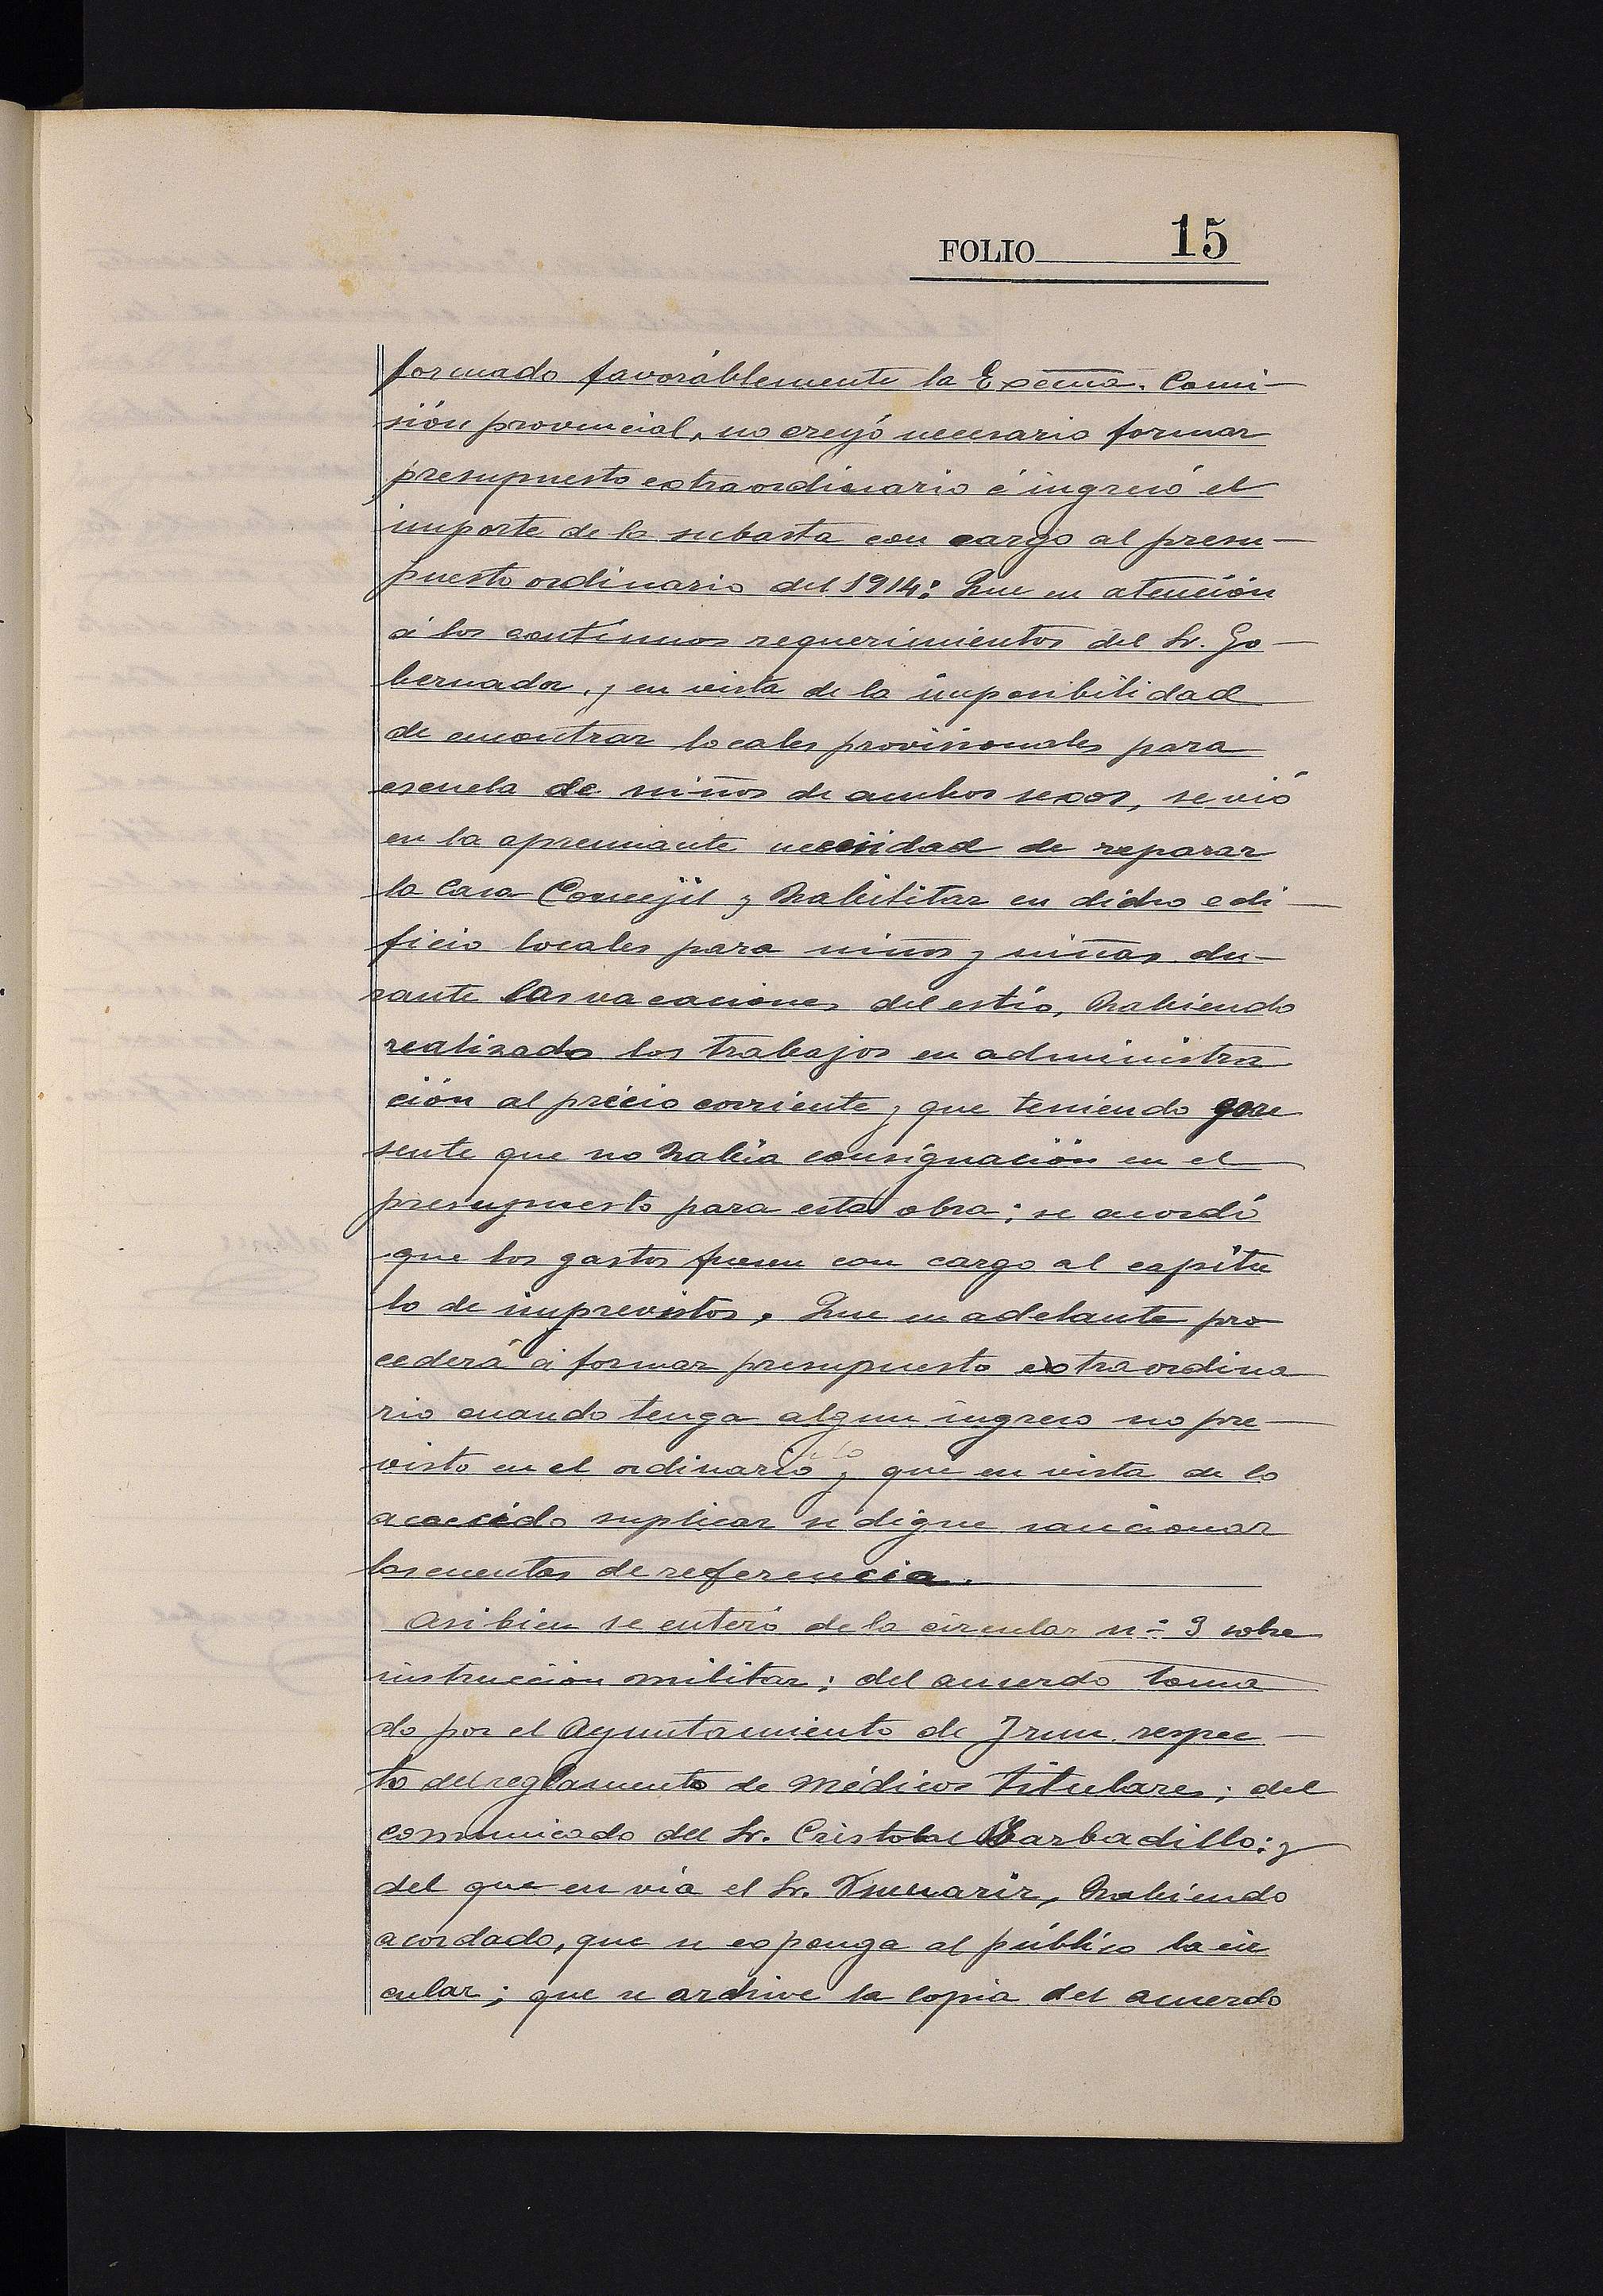 FOLIO 15
formado favorablemente la Excma. Comi-
sión provincial, no creyó necesario formar
presupuesto extraordinario é ingresó el
importe de la subasta con cargo al presu-
puesto ordinario del 1914: Que en atención
á los contínuos requerimientos del Sr. Go-
bernador, y en vista de la imposibilidad
de encontrar locales provisionales para
escuela de niños de ambos sexos, se vió
en la apremiante necesidad de reparar
la Casa Concejil y habilitar en dicho edi-
ficio locales para niños y niñas du-
rante las vacaciones del estío, habiendo
realizado los trabajos en administra
ción al précio corriente y que teniendo pre
sente que no había consignación en el
presupuesto para esta obra; se acordó
que los gastos fuesen con cargo al capítu
lo de imprevistos. Que en adelante pro
cederá á formar presupuesto extraordina
rio cuando tenga algun ingreso no pre-
visto en el ordinario y que en vista de lo
acaecido suplicar se digne sancionar
las cuentas de referencia.
Asi bien se enteró de la circular nº 3 sobre
instrucción militar; del acuerdo toma
do por el Ayuntamiento de Irun respec-
to del reglamento de médicos titulares; del
comunicado del Sr. Cristobal Barbadillo: y
del que envía el Sr. habiendo
acordado, que se exponga al público la cir
cular; que se archive la copia del acuerdo